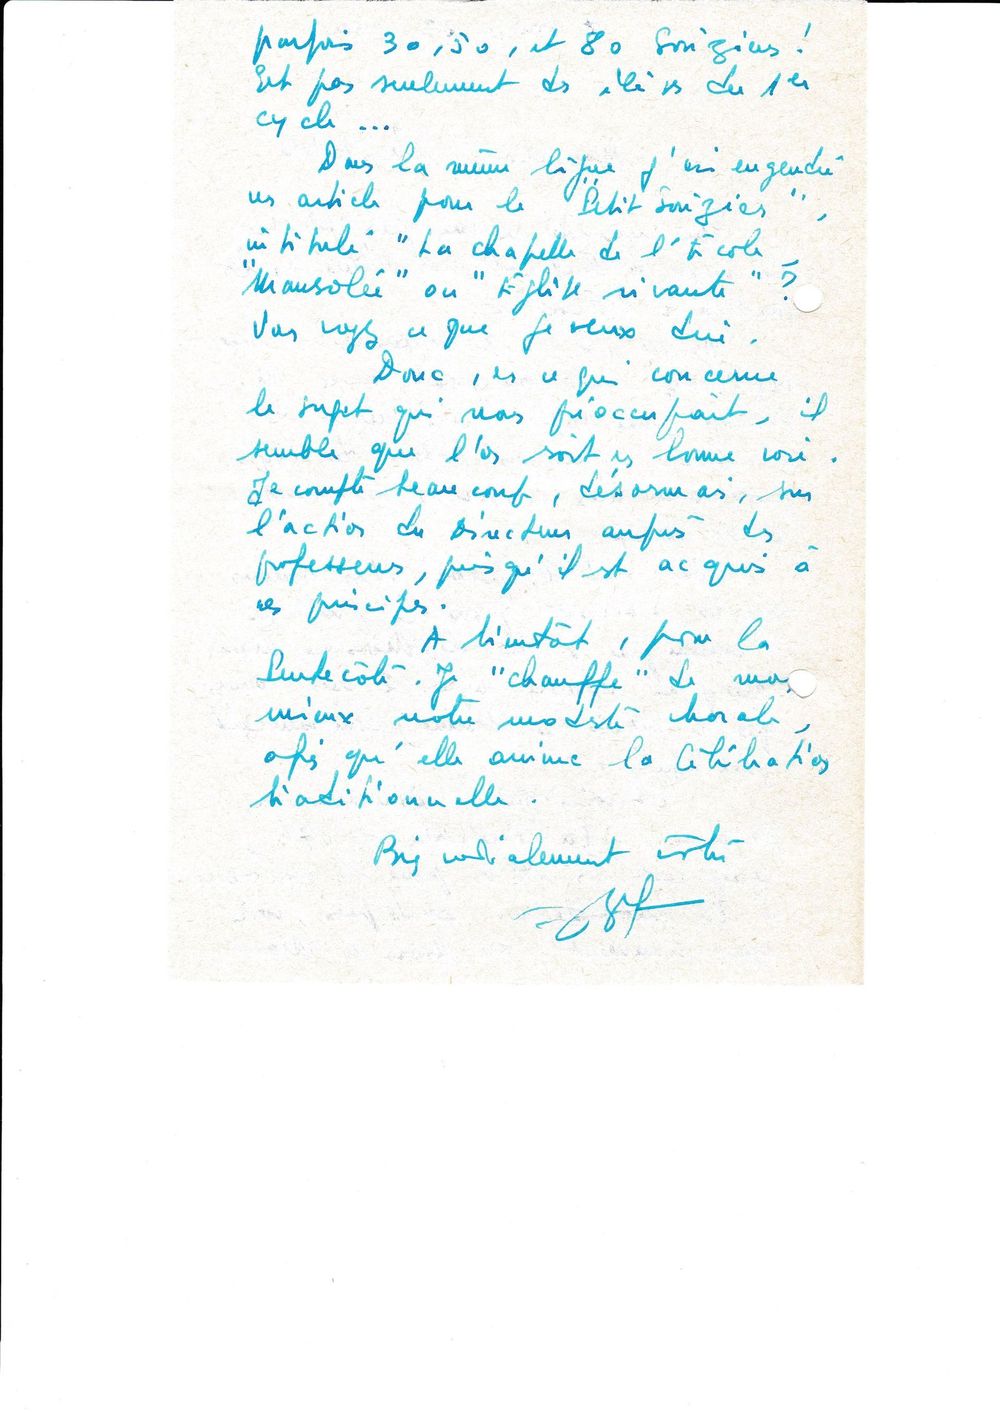 parfois 30, 50, et 80 Soréziens !
Et pas seulement des élèves du 1er
cycle ...
Dans la même ligne j'ai engendré
un article pour le "Petit Sorézien",
intitulé "La chapelle de l'École,
"Mausolée" ou "Église vivante" ?
Vous voyez ce que je veux dire.
Donc, en ce qui concerne
le sujet qui nous préoccupait, il
semble que l'on soit en bonne voie.
Je compte beaucoup, désormais, sur
l'action du Directeur auprès des
professeurs, puisqu'il est acquis à
ces principes.
A bientôt, pour la
Pentecôte. Je "chauffe" de mon
mieux notre modeste chorale,
afin qu'elle anime la célébration
traditionnelle.
Bien cordialement vôtre